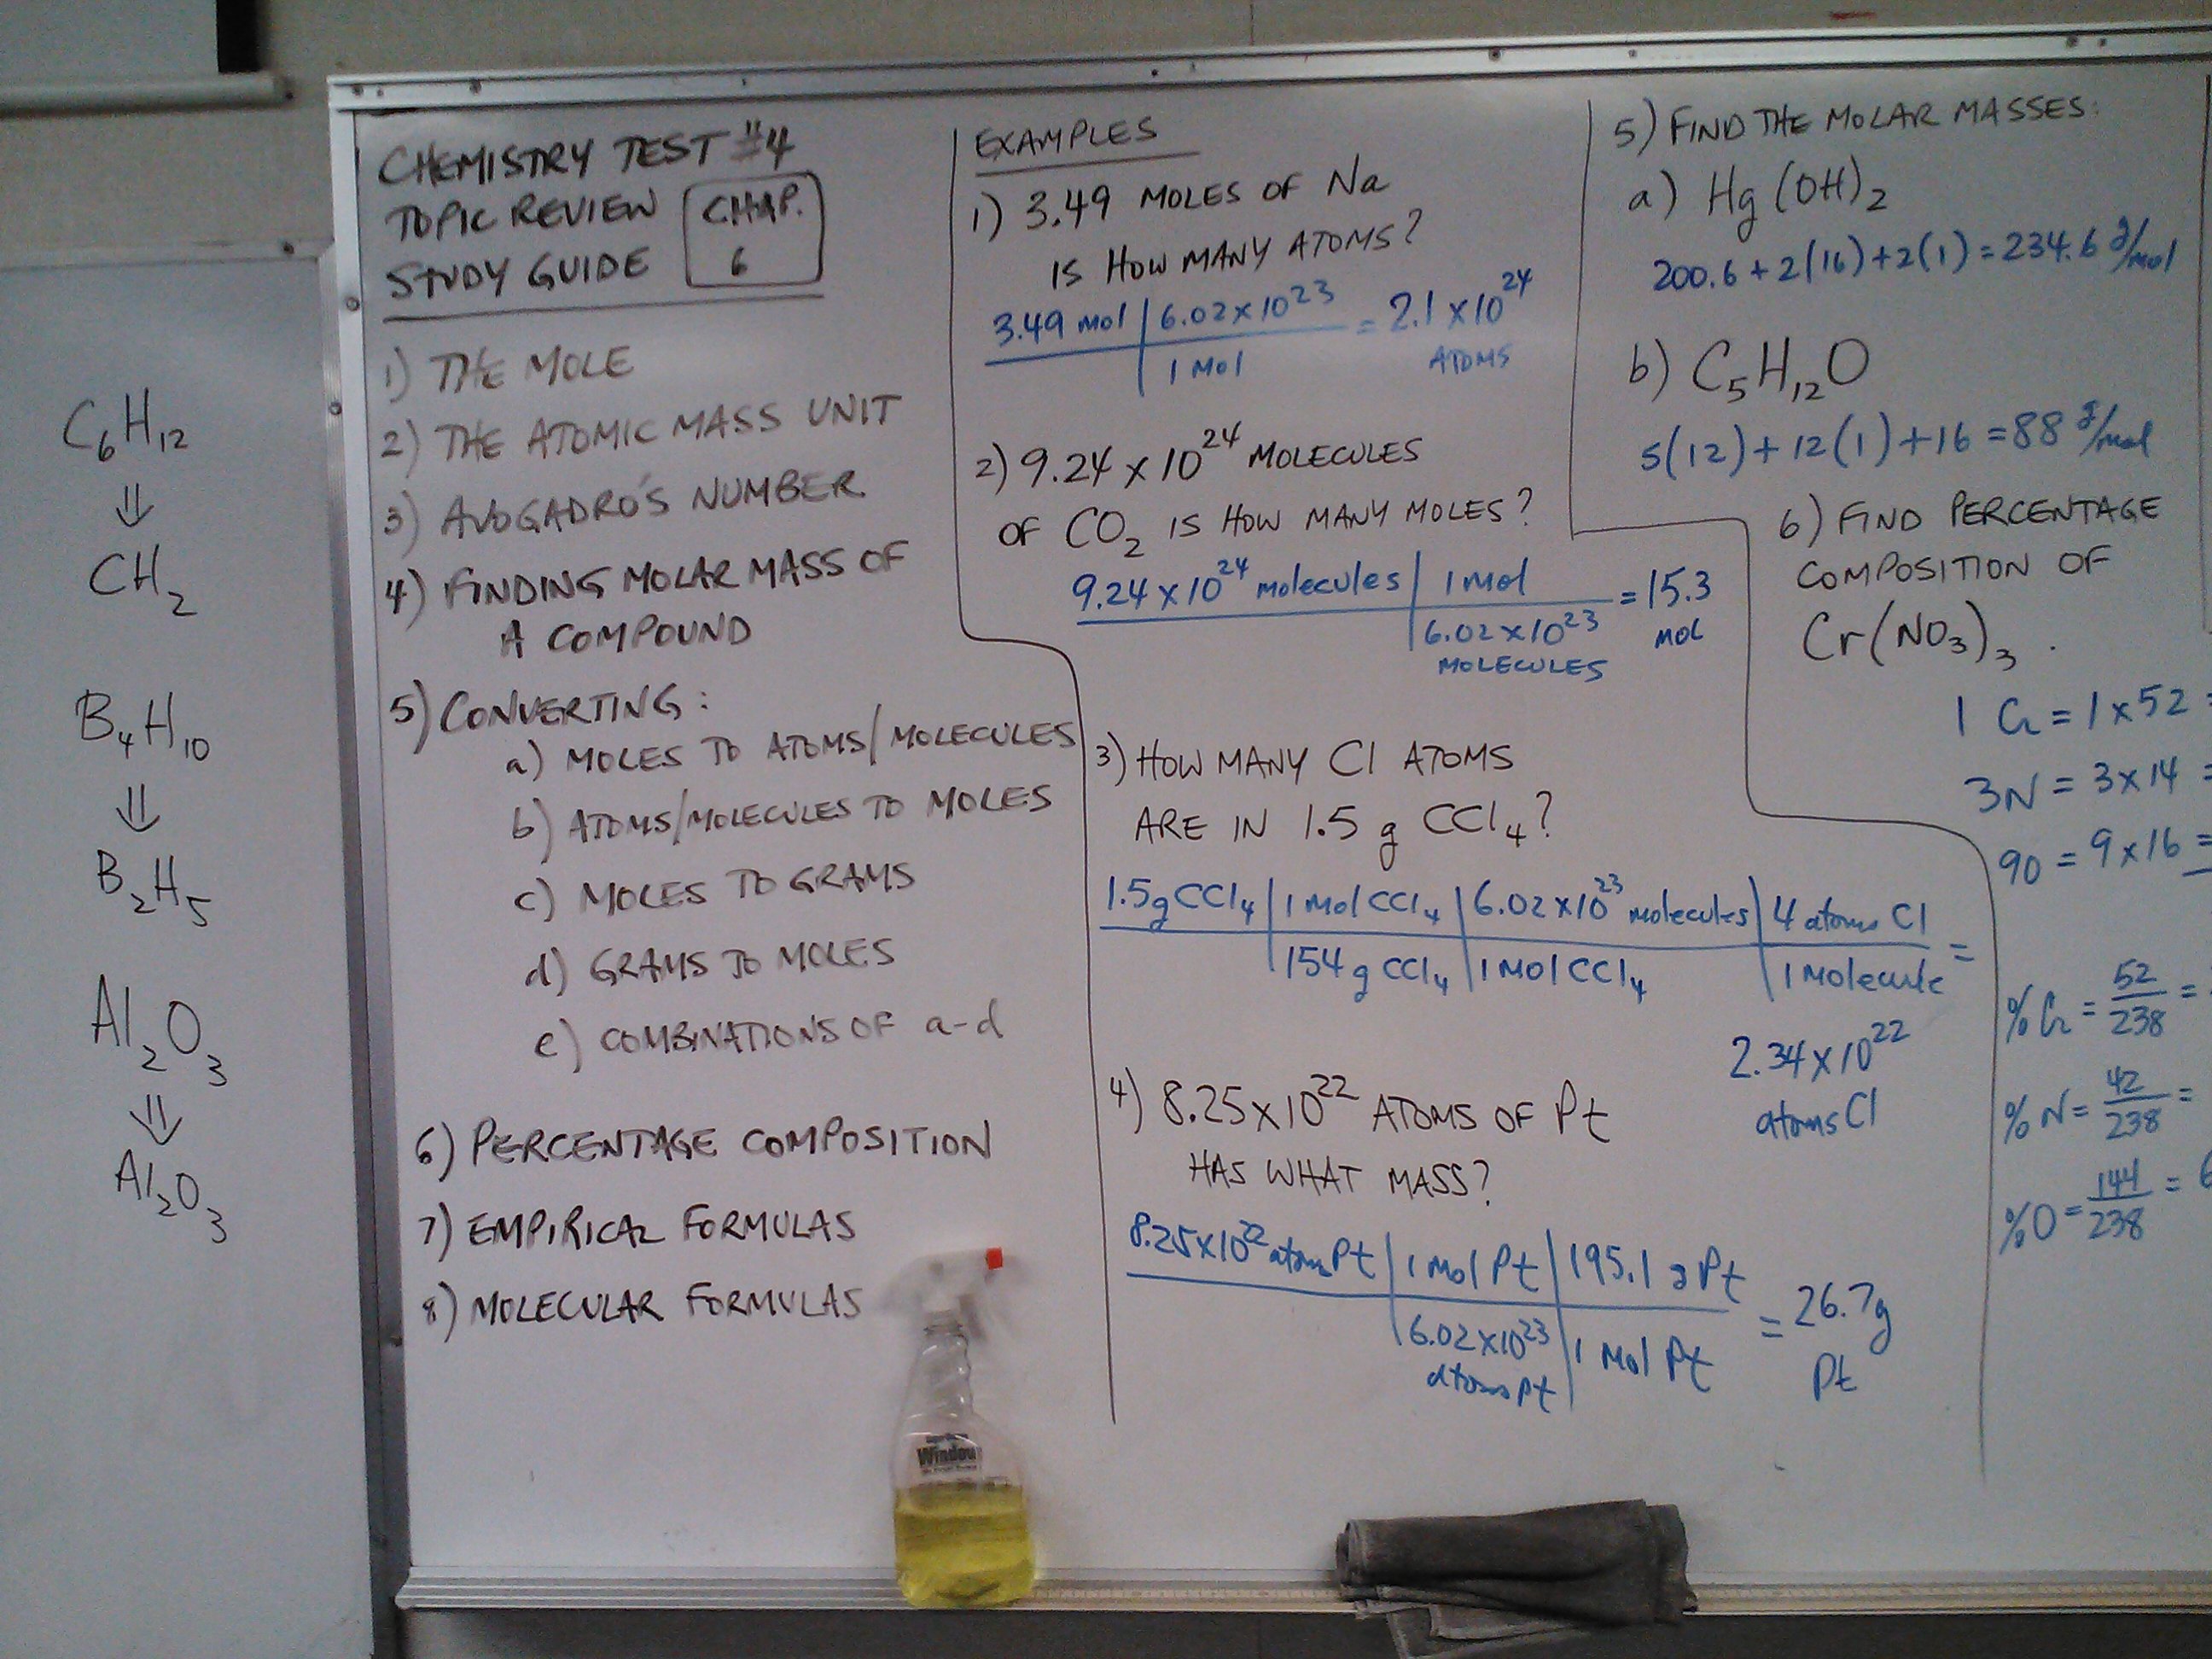 C₆H₁₂
⇓
CH₂
B₄H₁₀
⇓
B₂H₅
Al₂O₃
⇓
Al₂O₃
CHEMISTRY TEST #4
TOPIC REVIEW
STUDY GUIDE
CHAP.
6
1) THE MOLE
2) THE ATOMIC MASS UNIT
3) AVOGADRO'S NUMBER
4) FINDING MOLAR MASS OF
A COMPOUND
5) CONVERTING:
a) MOLES TO ATOMS/MOLECULES
b) ATOMS/MOLECULES TO MOLES
c) MOLES TO GRAMS
d) GRAMS TO MOLES
e) COMBINATIONS OF a-d
6) PERCENTAGE COMPOSITION
7) EMPIRICAL FORMULAS
8) MOLECULAR FORMULAS
EXAMPLES
1) 3.49 MOLES OF Na
IS HOW MANY ATOMS?
3.49 mol | 6.02 x 10²³ = 2.1 x 10²⁴
1 mol ATOMS
2) 9.24 x 10²⁴ MOLECULES
OF CO₂ IS HOW MANY MOLES?
9.24 x 10²⁴ molecules | 1 mol = 15.3
6.02 x 10²³ mol
MOLECULES
3) HOW MANY Cl ATOMS
ARE IN 1.5 g CCl₄?
1.5g CCl₄ | 1 mol CCl₄ | 6.02 x 10²³ molecules | 4 atoms Cl =
154 g CCl₄ | 1 mol CCl₄ | 1 molecule
2.34 x 10²²
atoms Cl
4) 8.25 x 10²² ATOMS OF Pt
HAS WHAT MASS?
8.25 x 10²² atoms Pt | 1 mol Pt | 195.1 g Pt = 26.7g
6.02 x 10²³ | 1 mol Pt Pt
atoms Pt
5) FIND THE MOLAR MASSES:
a) Hg(OH)₂
200.6 + 2(16) + 2(1) = 234.6 g/mol
b) C₅H₁₂O
5(12) + 12(1) + 16 = 88 g/mol
6) FIND PERCENTAGE
COMPOSITION OF
Cr(NO₃)₃.
1 Cr = 1 x 52 =
3N = 3 x 14 =
9O = 9 x 16 =
% Cr = 52/238 =
% N = 42/238 =
% O = 144/238 = 6
Window